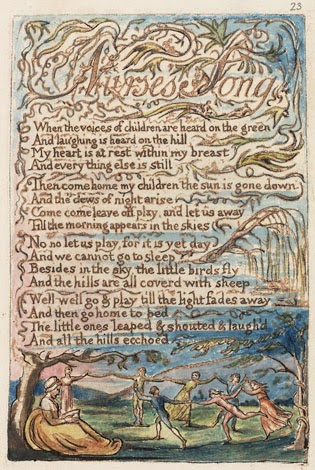 23
Nurses Song
When the voices of children are heard on the green
And laughing is heard on the hill
My heart is at rest within my breast
And every thing else is still
Then come home my children the sun is gone down
And the dews of night arise
Come come leave off play, and let us away
Till the morning appears in the skies
No no let us play, for it is yet day
And we cannot go to sleep
Besides in the sky, the little birds fly
And the hills are all coverd with sheep
Well well go & play till the light fades away
And then go home to bed
The little ones leaped & shouted & laugh'd
And all the hills ecchoed